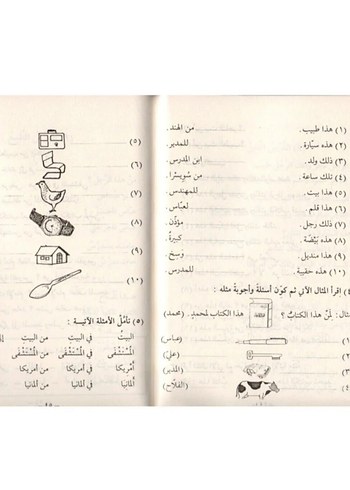 (١) هذا طبيب . من الهند .
(٢) هذه سيّارة . للمدير .
(٣) ذلك ولد . ابن المدرس .
(٤) تلك ساعة . من سويسرا .
(٥) هذا بيت . للمهندس .
(٦) هذا قلم . لعبّاس .
(٧) ذلك رجل . مؤذّن .
(٨) هذه بيضة . كبيرة .
(٩) هذا منديل . وسخ .
(١٠) هذه حقيبة . للمدرس .
اقرأ المثال الآتي ثم كوّن أسئلة وأجوبة مثله :
لِمَنْ هذا الكتابُ ؟ هذا الكتاب لمحمدٍ. (محمد)
(عباس)
(علي)
(المدير)
(الفلاح)
(٥)
(٦)
(٧)
(٨)
(٩)
(١٠)
(٥) تأمّل الأمثلة الآتية :
البيتُ في البيتِ من البيتِ
المُسْتَشْفَى في المُسْتَشْفَى من المُسْتَشْفَى
أمريكا في أمريكا من أمريكا
ألمانيا في ألمانيا من ألمانيا